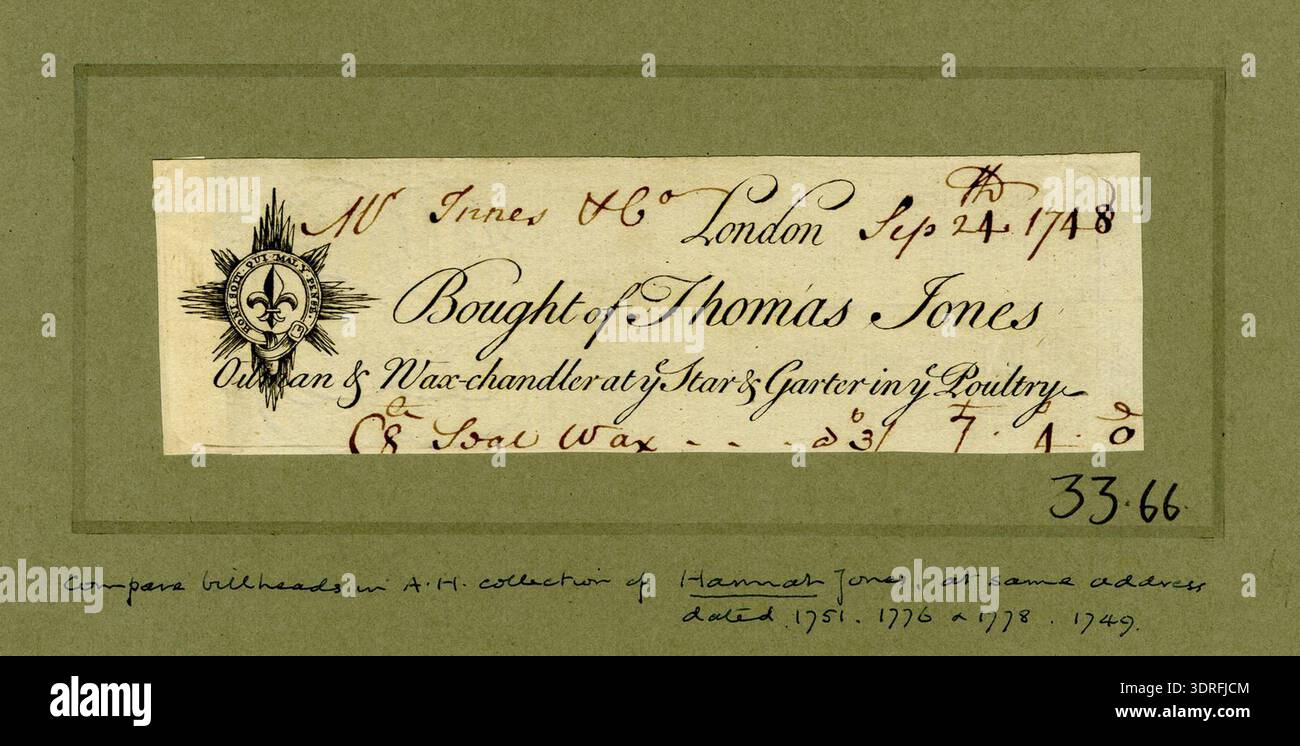 Mr Innes & Co London Sep 24th 1748
HONI SOIT QUI MAL Y PENSE
Bought of Thomas Jones
Oilman & Wax-chandler at ye Star & Garter in ye Poultry
Seal Wax - - - a 3/ 7 . 4 . 0
33.66.
Compare billheads in A.H. collection of Hannah Jones, at same address
dated 1751. 1776 & 1778. 1749.
a a a a a
a a a a
a a a a a
alamy
Image ID: 3DRFJCM
www.alamy.com